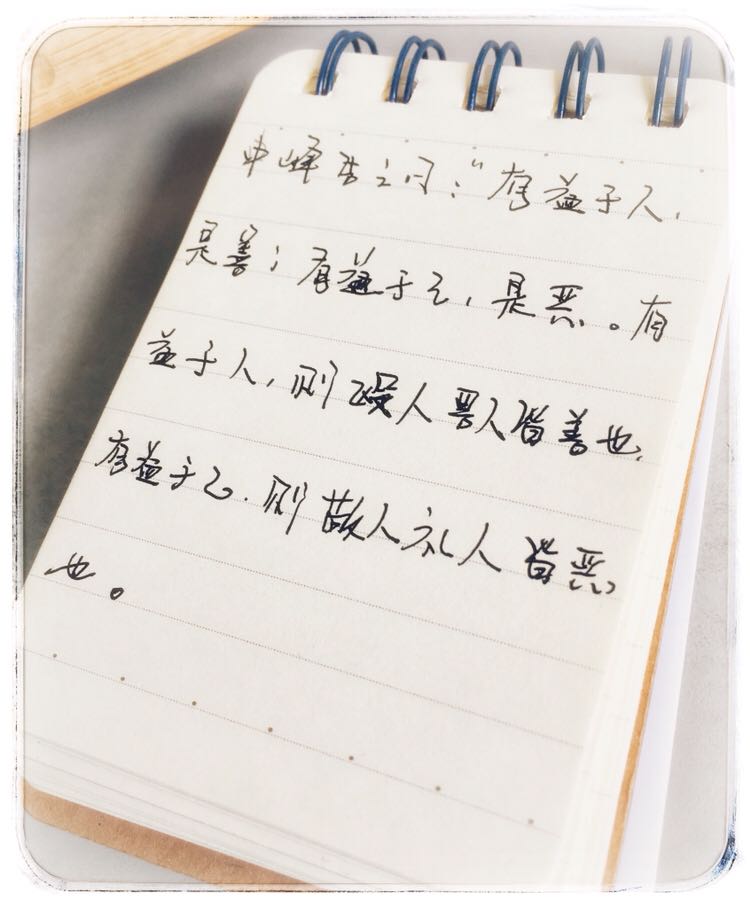 中峰告之曰：“有益于人，
是善；有益于己，是恶。有
益于人，则殴人詈人皆善也，
有益于己，则敬人礼人皆恶
也。